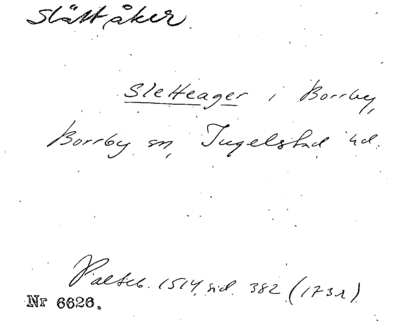 Slätt åker.
Sletteager i Borrby,
Borrby sn, Ingelstad hd.
Paltsb. 1514, sid. 382 (173r)
Nr 6626.